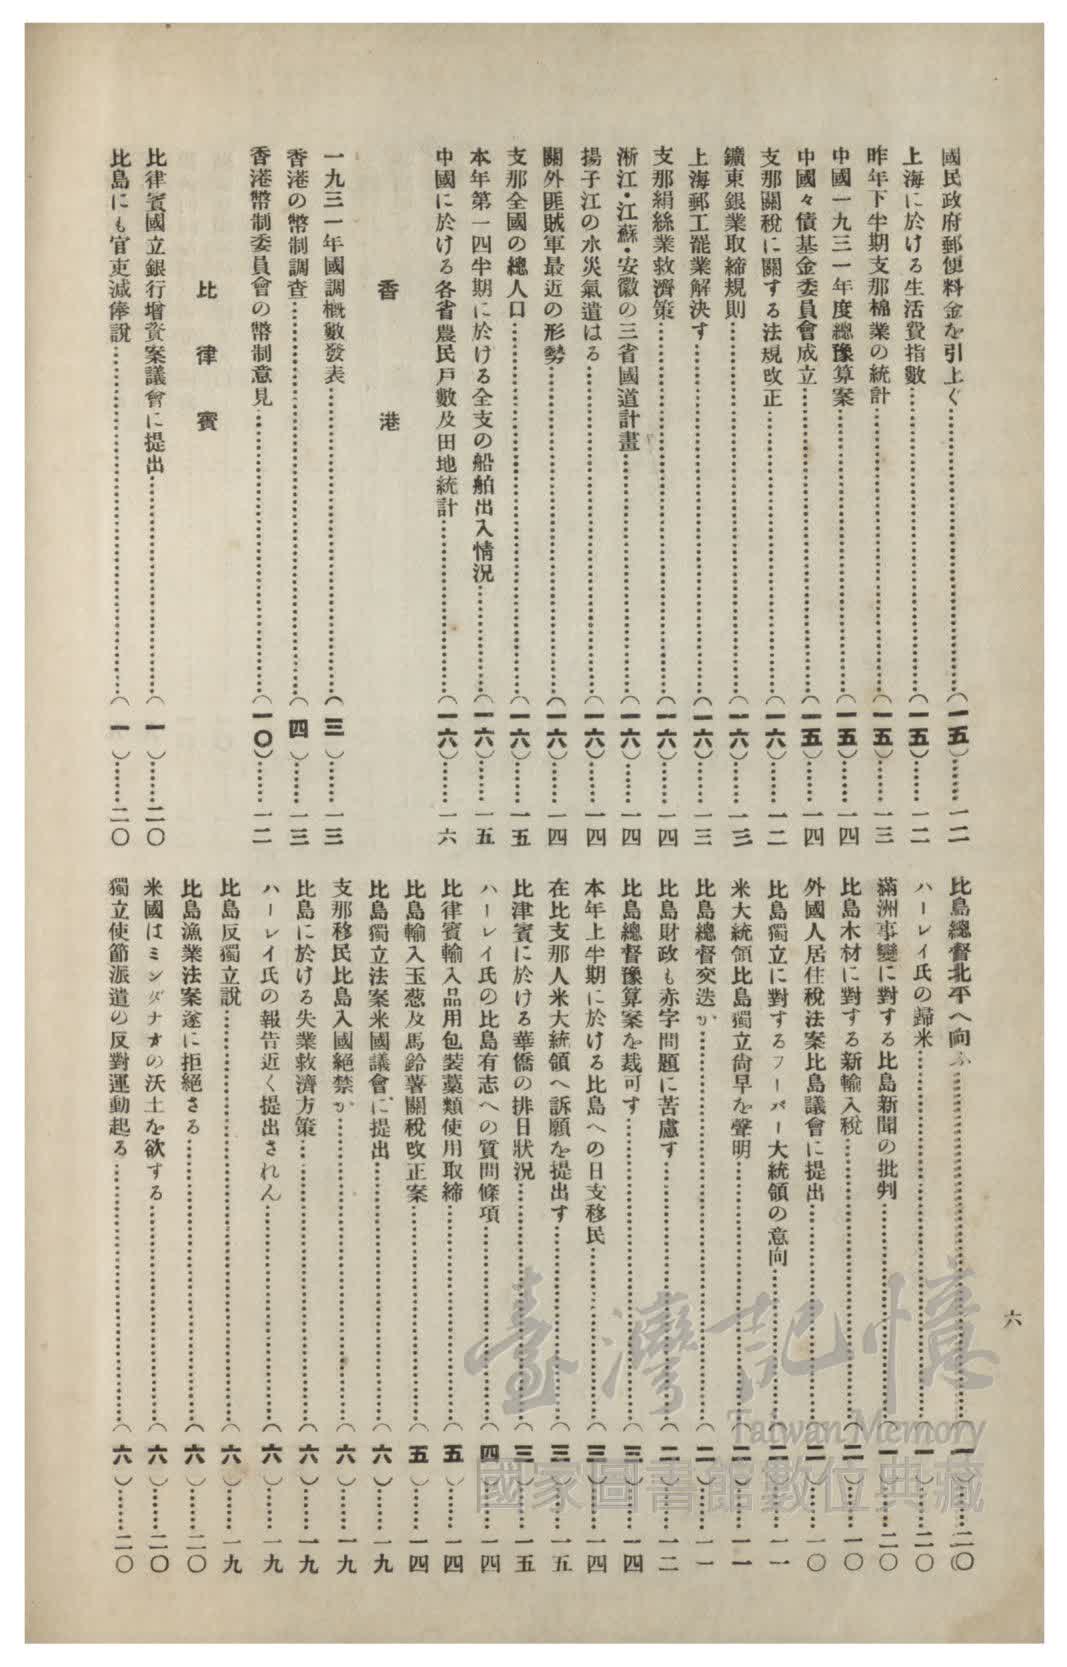 六
國民政府郵便料金を引上ぐ……(一五)……一二
上海に於ける生活費指數……(一五)……一二
昨年下半期支那棉業の統計……(一五)……一三
中國一九三一年度總豫算案……(一五)……一四
中國々債基金委員會成立……(一五)……一四
支那關稅に關する法規改正……(一六)……一二
鑛東銀業取締規則……(一六)……一三
上海郵工罷業解決す……(一六)……一三
支那絹絲業救濟策……(一六)……一四
浙江・江蘇・安徽の三省國道計畫……(一六)……一四
揚子江の水災氣遣はる……(一六)……一四
關外匪賊軍最近の形勢……(一六)……一四
支那全國の總人口……(一六)……一五
本年第一四半期に於ける全支の船舶出入情況……(一六)……一五
中國に於ける各省農民戶數及田地統計……(一六)……一六
香港
一九三一年國調概數發表……(三)……一三
香港の幣制調査……(四)……一三
香港幣制委員會の幣制意見……(一〇)……一二
比律賓
比律賓國立銀行增資案議會に提出……(一)……二〇
比島にも官吏減俸說……(一)……二〇
比島總督北平へ向ふ……(一)……二〇
ハーレイ氏の歸米……(一)……二〇
滿洲事變に對する比島新聞の批判……(一)……二〇
比島木材に對する新輸入稅……(二)……一〇
外國人居住稅法案比島議會に提出……(二)……一〇
比島獨立に對するフーバー大統領の意向……(二)……一一
米大統領比島獨立尙早を聲明……(二)……一一
比島總督交迭か……(二)……一一
比島財政も赤字問題に苦慮す……(二)……一二
比島總督豫算案を裁可す……(三)……一四
本年上半期に於ける比島への日支移民……(三)……一四
在比支那人米大統領へ訴願を提出す……(三)……一五
比律賓に於ける華僑の排日狀況……(三)……一五
ハーレイ氏の比島有志への質問條項……(四)……一四
比律賓輸入品用包裝藁類使用取締……(五)……一四
比島輸入玉葱及馬鈴薯關稅改正案……(五)……一四
比島獨立法案米國議會に提出……(六)……一九
支那移民比島入國絕禁か……(六)……一九
比島に於ける失業救濟方策……(六)……一九
ハーレイ氏の報告近く提出されん……(六)……一九
比島反獨立說……(六)……一九
比島漁業法案遂に拒絕さる……(六)……二〇
米國はミンダナオの沃土を欲する……(六)……二〇
獨立使節派遣の反對運動起る……(六)……二〇
臺灣記憶
Taiwan Memory
國家圖書館數位典藏